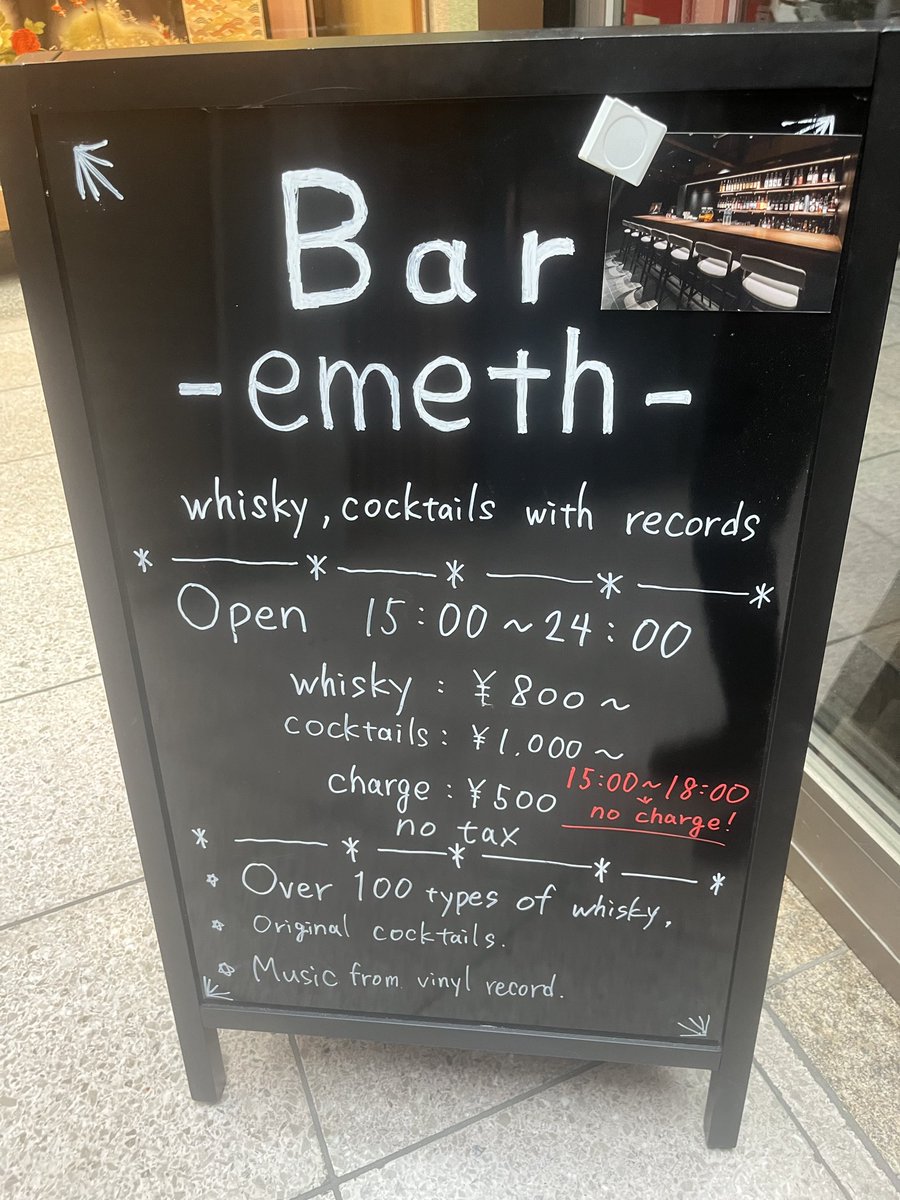 Bar
-emeth-
whisky, cocktails with records
Open 15:00~24:00
whisky : ¥800~
cocktails : ¥1.000~
charge : ¥500 15:00~18:00
no charge!
no tax
Over 100 types of whisky.
Original cocktails.
Music from vinyl record.